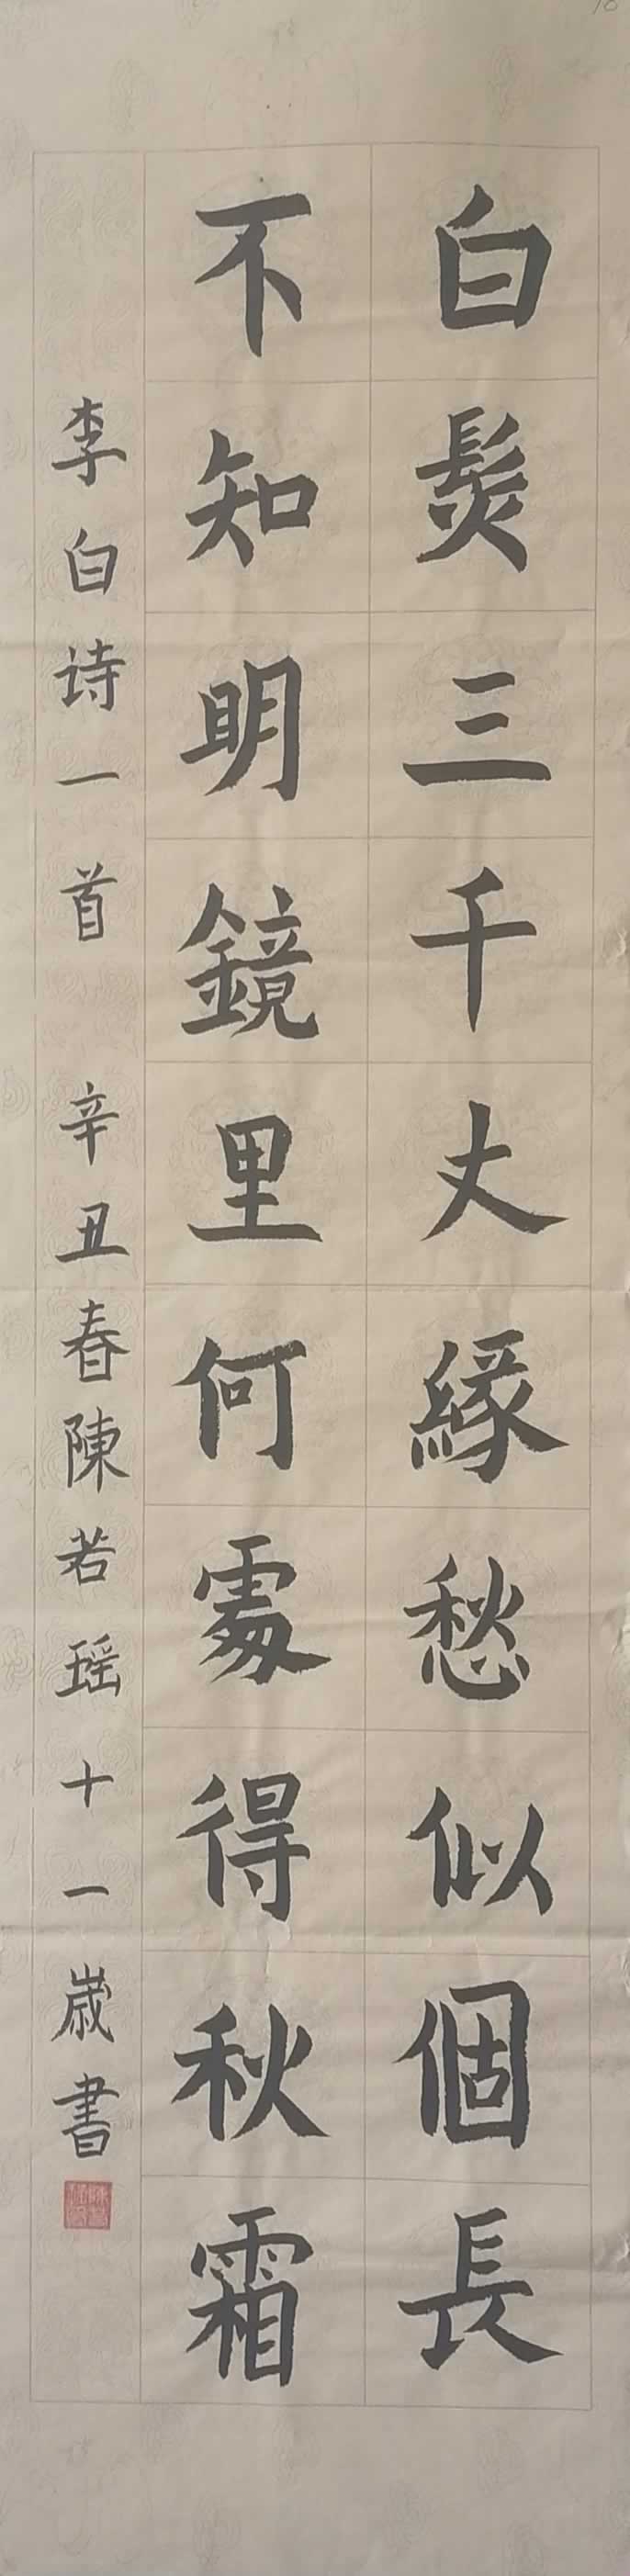 白髮三千丈緣愁似個長
不知明鏡里何處得秋霜
李白诗一首 辛丑春陳若瑶十一歲書